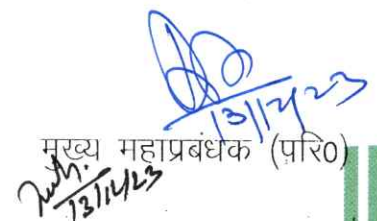 13/12/23
मुख्य महाप्रबंधक (परि0)
13/12/23